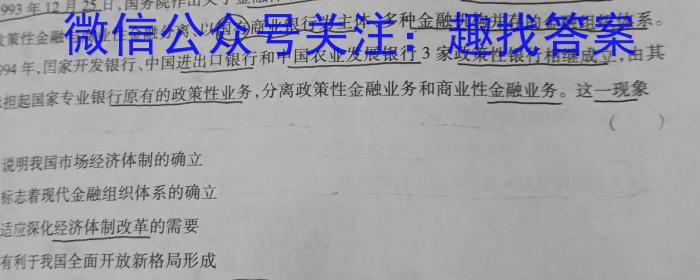 1993年12月25日,国务院作出关于金融
政策性金融 以国有商业银行为主体、多种金融机构并存的 体系。
微信公众号关注：趣找答案
994年,国家开发银行、中国进出口银行和中国农业发展银行3家政策性银行相继成立,由其
担起国家专业银行原有的政策性业务,分离政策性金融业务和商业性金融业务。这一现象
( )
说明我国市场经济体制的确立
标志着现代金融组织体系的确立
适应深化经济体制改革的需要
有利于我国全面开放新格局形成